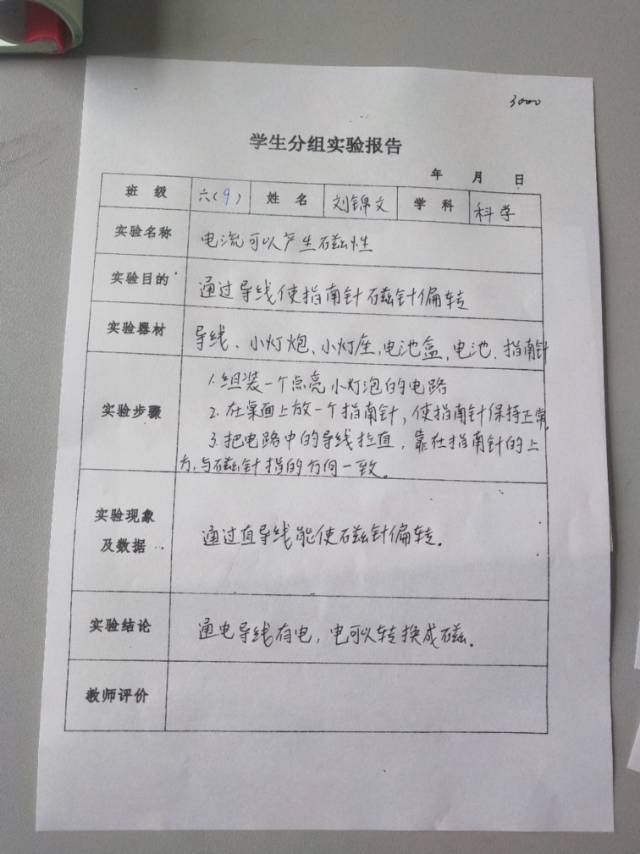 3000
学生分组实验报告
年 月 日
班 级 六(9) 姓 名 刘锦文 学 科 科学
实验名称 电流可以产生磁性
实验目的 通过导线使指南针磁针偏转
实验器材 导线、小灯炮、小灯座,电池盒,电池、指南针
实验步骤
1.组装一个点亮小灯泡的电路
2.在桌面上放一个指南针,使指南针保持正常,
3.把电路中的导线拉直,靠在指南针的上
方,与磁针指的方向一致。
实验现象
及数据
通过直导线能使磁针偏转.
实验结论 通电导线有电,电可以转换成磁.
教师评价